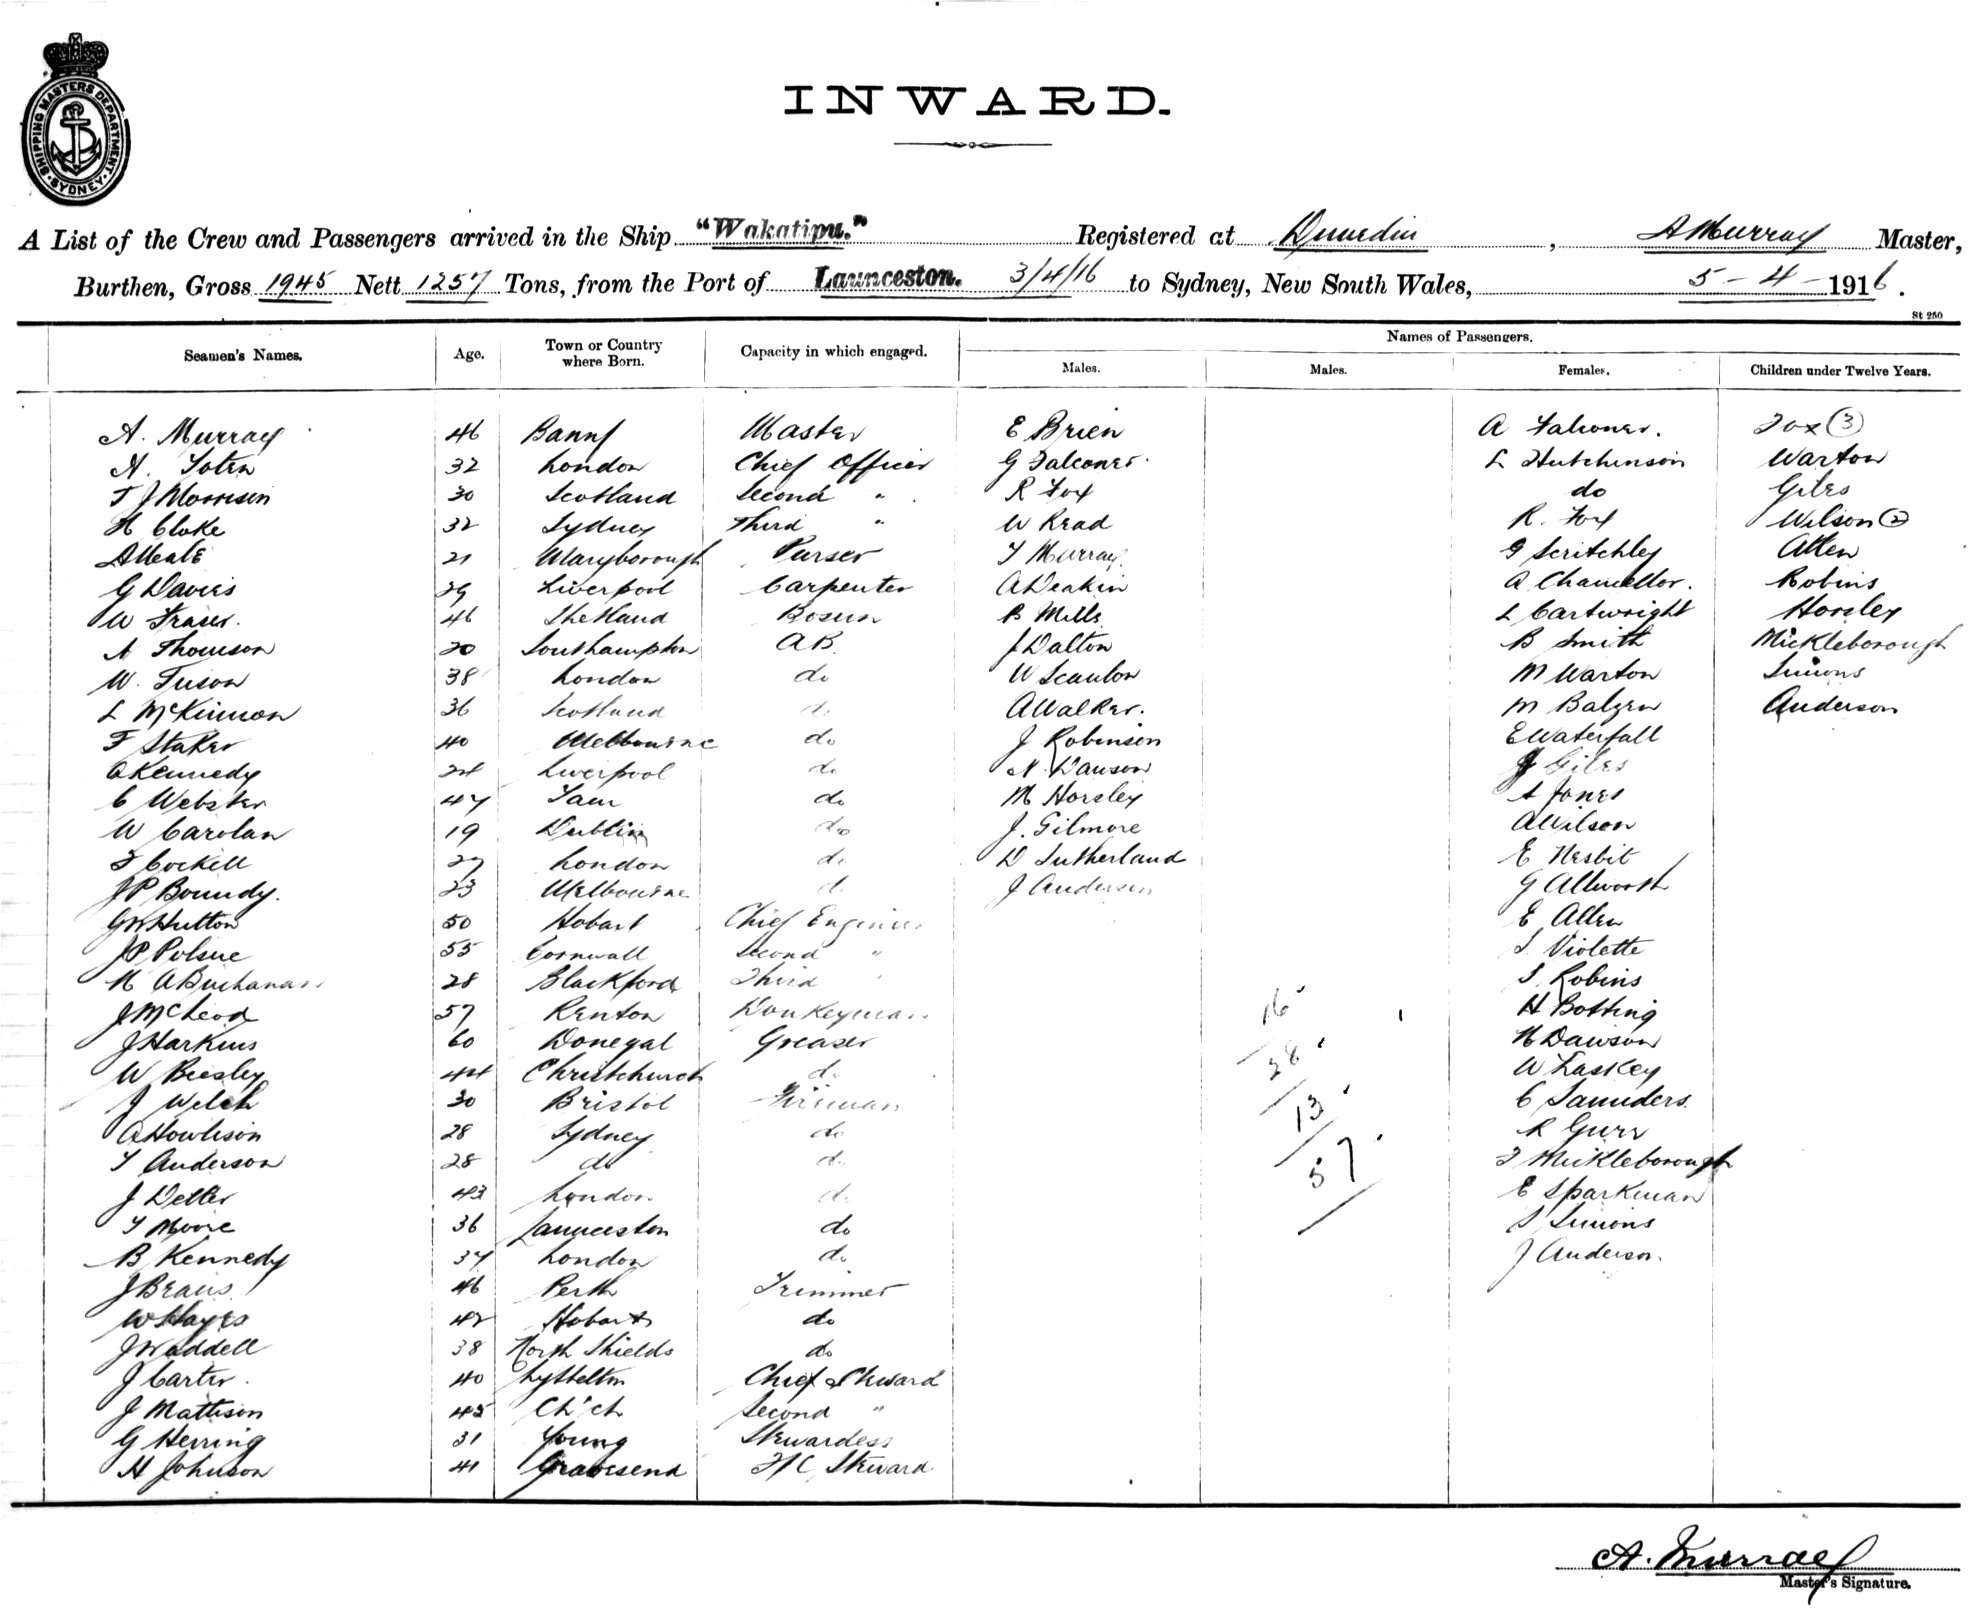 INWARD.
SHIPPING MASTERS DEPARTMENT. SYDNEY.
A List of the Crew and Passengers arrived in the Ship "Wakatipu." Registered at Dunedin, A Murray Master,
Burthen, Gross 1945 Nett 1257 Tons, from the Port of Launceston. 3/4/16 to Sydney, New South Wales, 5-4-1916.
St 250
Seamen's Names. Age. Town or Country where Born. Capacity in which engaged. Names of Passengers.
Males. Males. Females. Children under Twelve Years.
A. Murray 46 Banff Master E Brien A Falconer. Fox (3)
A. 32 London Chief Officer G Falconer. L Hutchinson Warton
T J Morrisin 30 Scotland Second " R Fox do Giles
H Cloke 32 Sydney Third " W Read R. Fox Wilson (2)
A Neale 21 Maryborough Purser T Murray. G Scritchley Allen
G Davies 29 Liverpool Carpenter A Deakin A Chancellor. Robins
W Fraser. 46 Shetland Bosun B Mills L Cartwright Horsley
A Thomson 20 Southampton AB J Dalton B Smith Mickleborough
W. Tuson 38 London do W Scanlon M Warton Simons
L McKinnon 36 Scotland do A Walker. M Balzen Anderson
F Staker 40 Melbourne do J Robinson E Waterfall
A Kennedy 24 Liverpool do N. Dawson J Giles
C Webster 47 do M Horsley A Jones
W Carolan 19 Dublin do J. Gilmore A Wilson
F Cockell 27 London do D Sutherland E Nesbit
J P Boundy. 23 Melbourne do J Anderson G Allworth
G W Hutton 50 Hobart Chief Engineer E Allen
J P Polsue 55 Cornwall Second " S. Violette
M A Buchanan 28 Blackford Third " S. Robins
J McLeod 57 Renton Donkeyman 16 H Botting
J Harkins 60 Donegal Greaser 28 N Dawson
W Beesley 44 Christchurch do W Laskey
J Welch 30 Bristol Fireman 13 C Saunders.
A Howlison 28 Sydney do 57 R Gurr
T Anderson 28 do do F Mickleborough
J Detler 43 London do E Sparkman
T Moore 36 Launceston do S Simons
B Kennedy 37 London do J Anderson.
J Beavis 46 Perth Trimmer
W Hayes 42 Hobart do
J Waddell 38 North Shields do
J Carter. 40 Lyttelton Chief Steward
J Mattison 45 Ch'ch Second "
G Herring 31 Young Stewardess
H Johnson 41 Gravesend F/C Steward
A. Murray
Master's Signature.